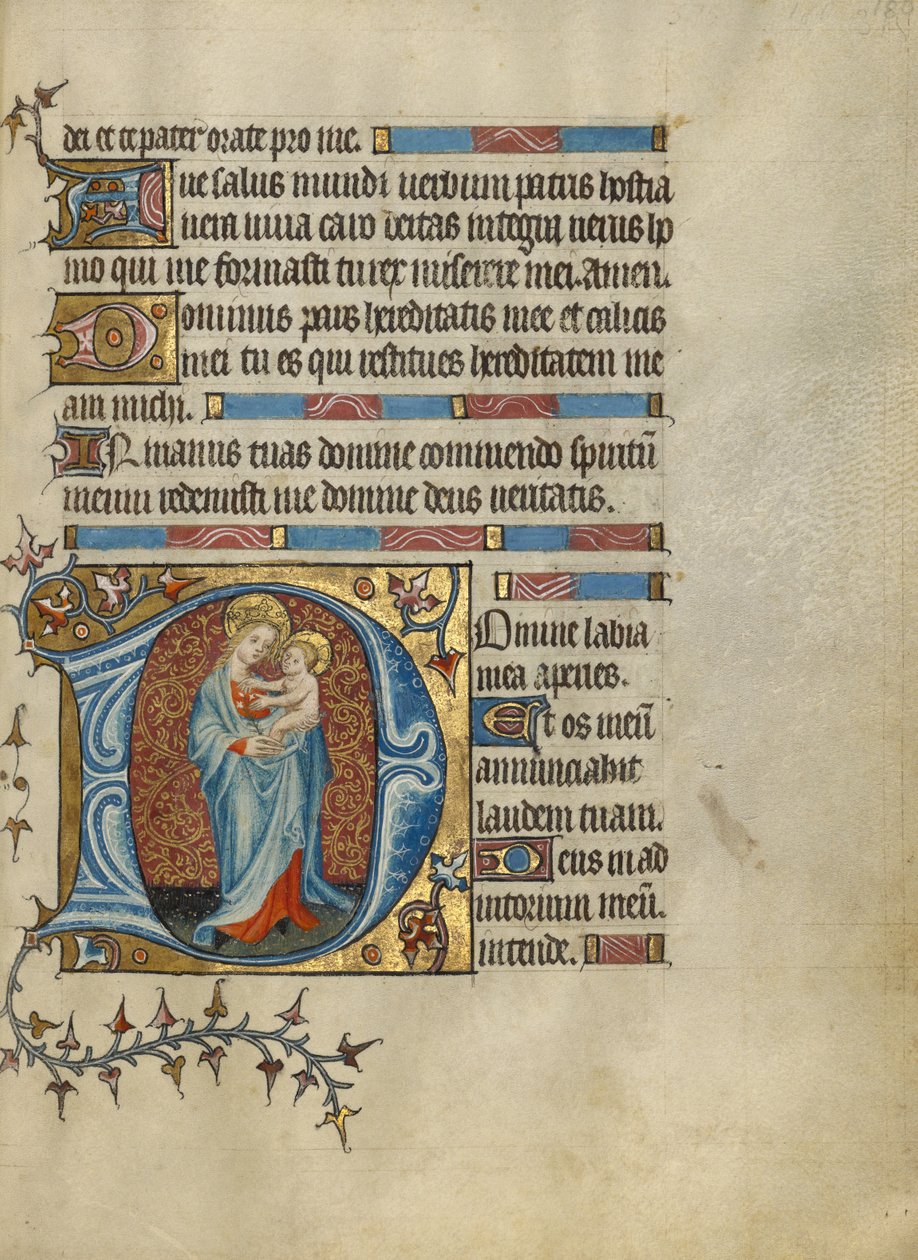 dei et te pater orate pro me.
Aue salus mundi uerbum patris hostia
uera uiua caro deitas integra uerus ho
mo qui me formasti tu rex miserere mei. Amen.
Dominus pars hereditatis mee et calicis
mei tu es qui restitues hereditatem me
am michi.
IN manus tuas domine commendo spiritū
meum redemisti me domine deus ueritatis.
Domine labia
mea aperies.
Et os meū
annunciabit
laudem tuam.
Deus in ad
iutorium meū.
intende.